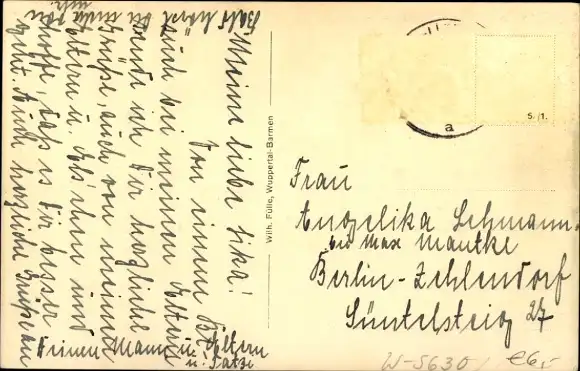 Meine liebe Gika!
Von einem Be-
such bei meinen Eltern
sende ich Dir herzliche
Grüße, auch von meinen
Eltern u. Els'chen und
hoffe, daß es Dir besser
geht. Auch herzliche Grüße an
Deinen Mann u. Eltern
u.
Bald hörst Du mehr von
mir.
Wilh. Fülle, Wuppertal-Barmen
S./1.
a
Frau
Angelika Lehmann.
bei Max Mantke
Berlin-Zehlendorf
Süntelsteig 27
W-5630/ €6,-